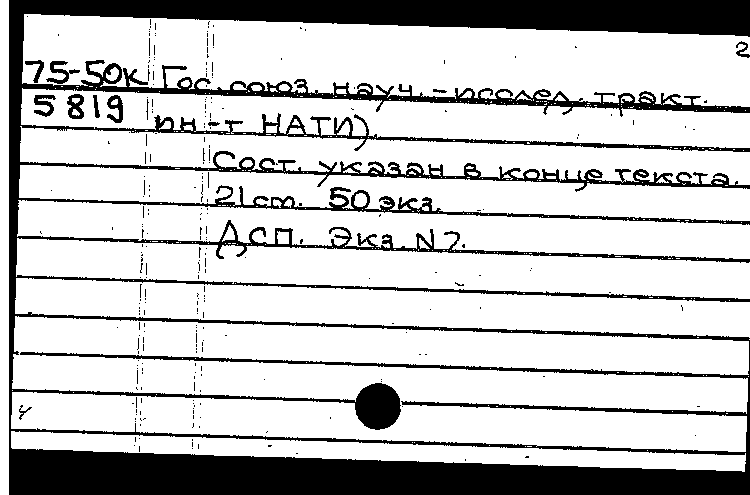 2
75-50к Гос. союз. науч.-исслед. тракт.
5819 ин-т НАТИ).
Сост. указан в конце текста.
21 см. 50 экз.
ДСП. Экз. N 7.